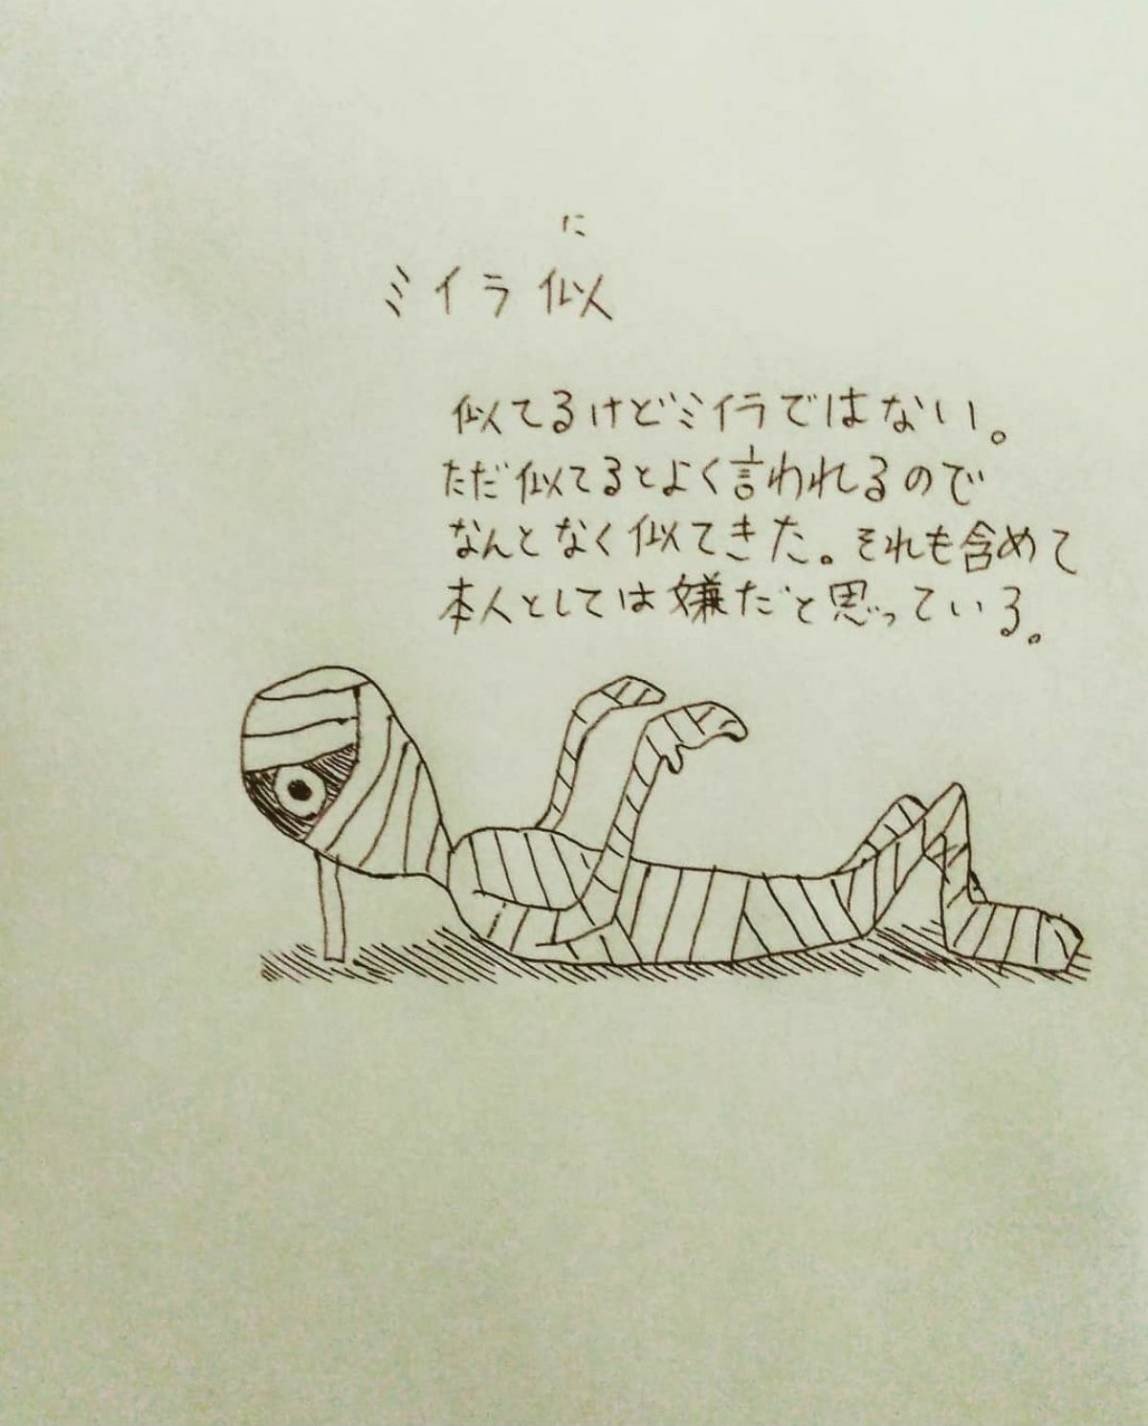 に
ミイラ似
似てるけどミイラではない。
ただ似てるとよく言われるので
なんとなく似てきた。それも含めて
本人としては嫌だと思っている。